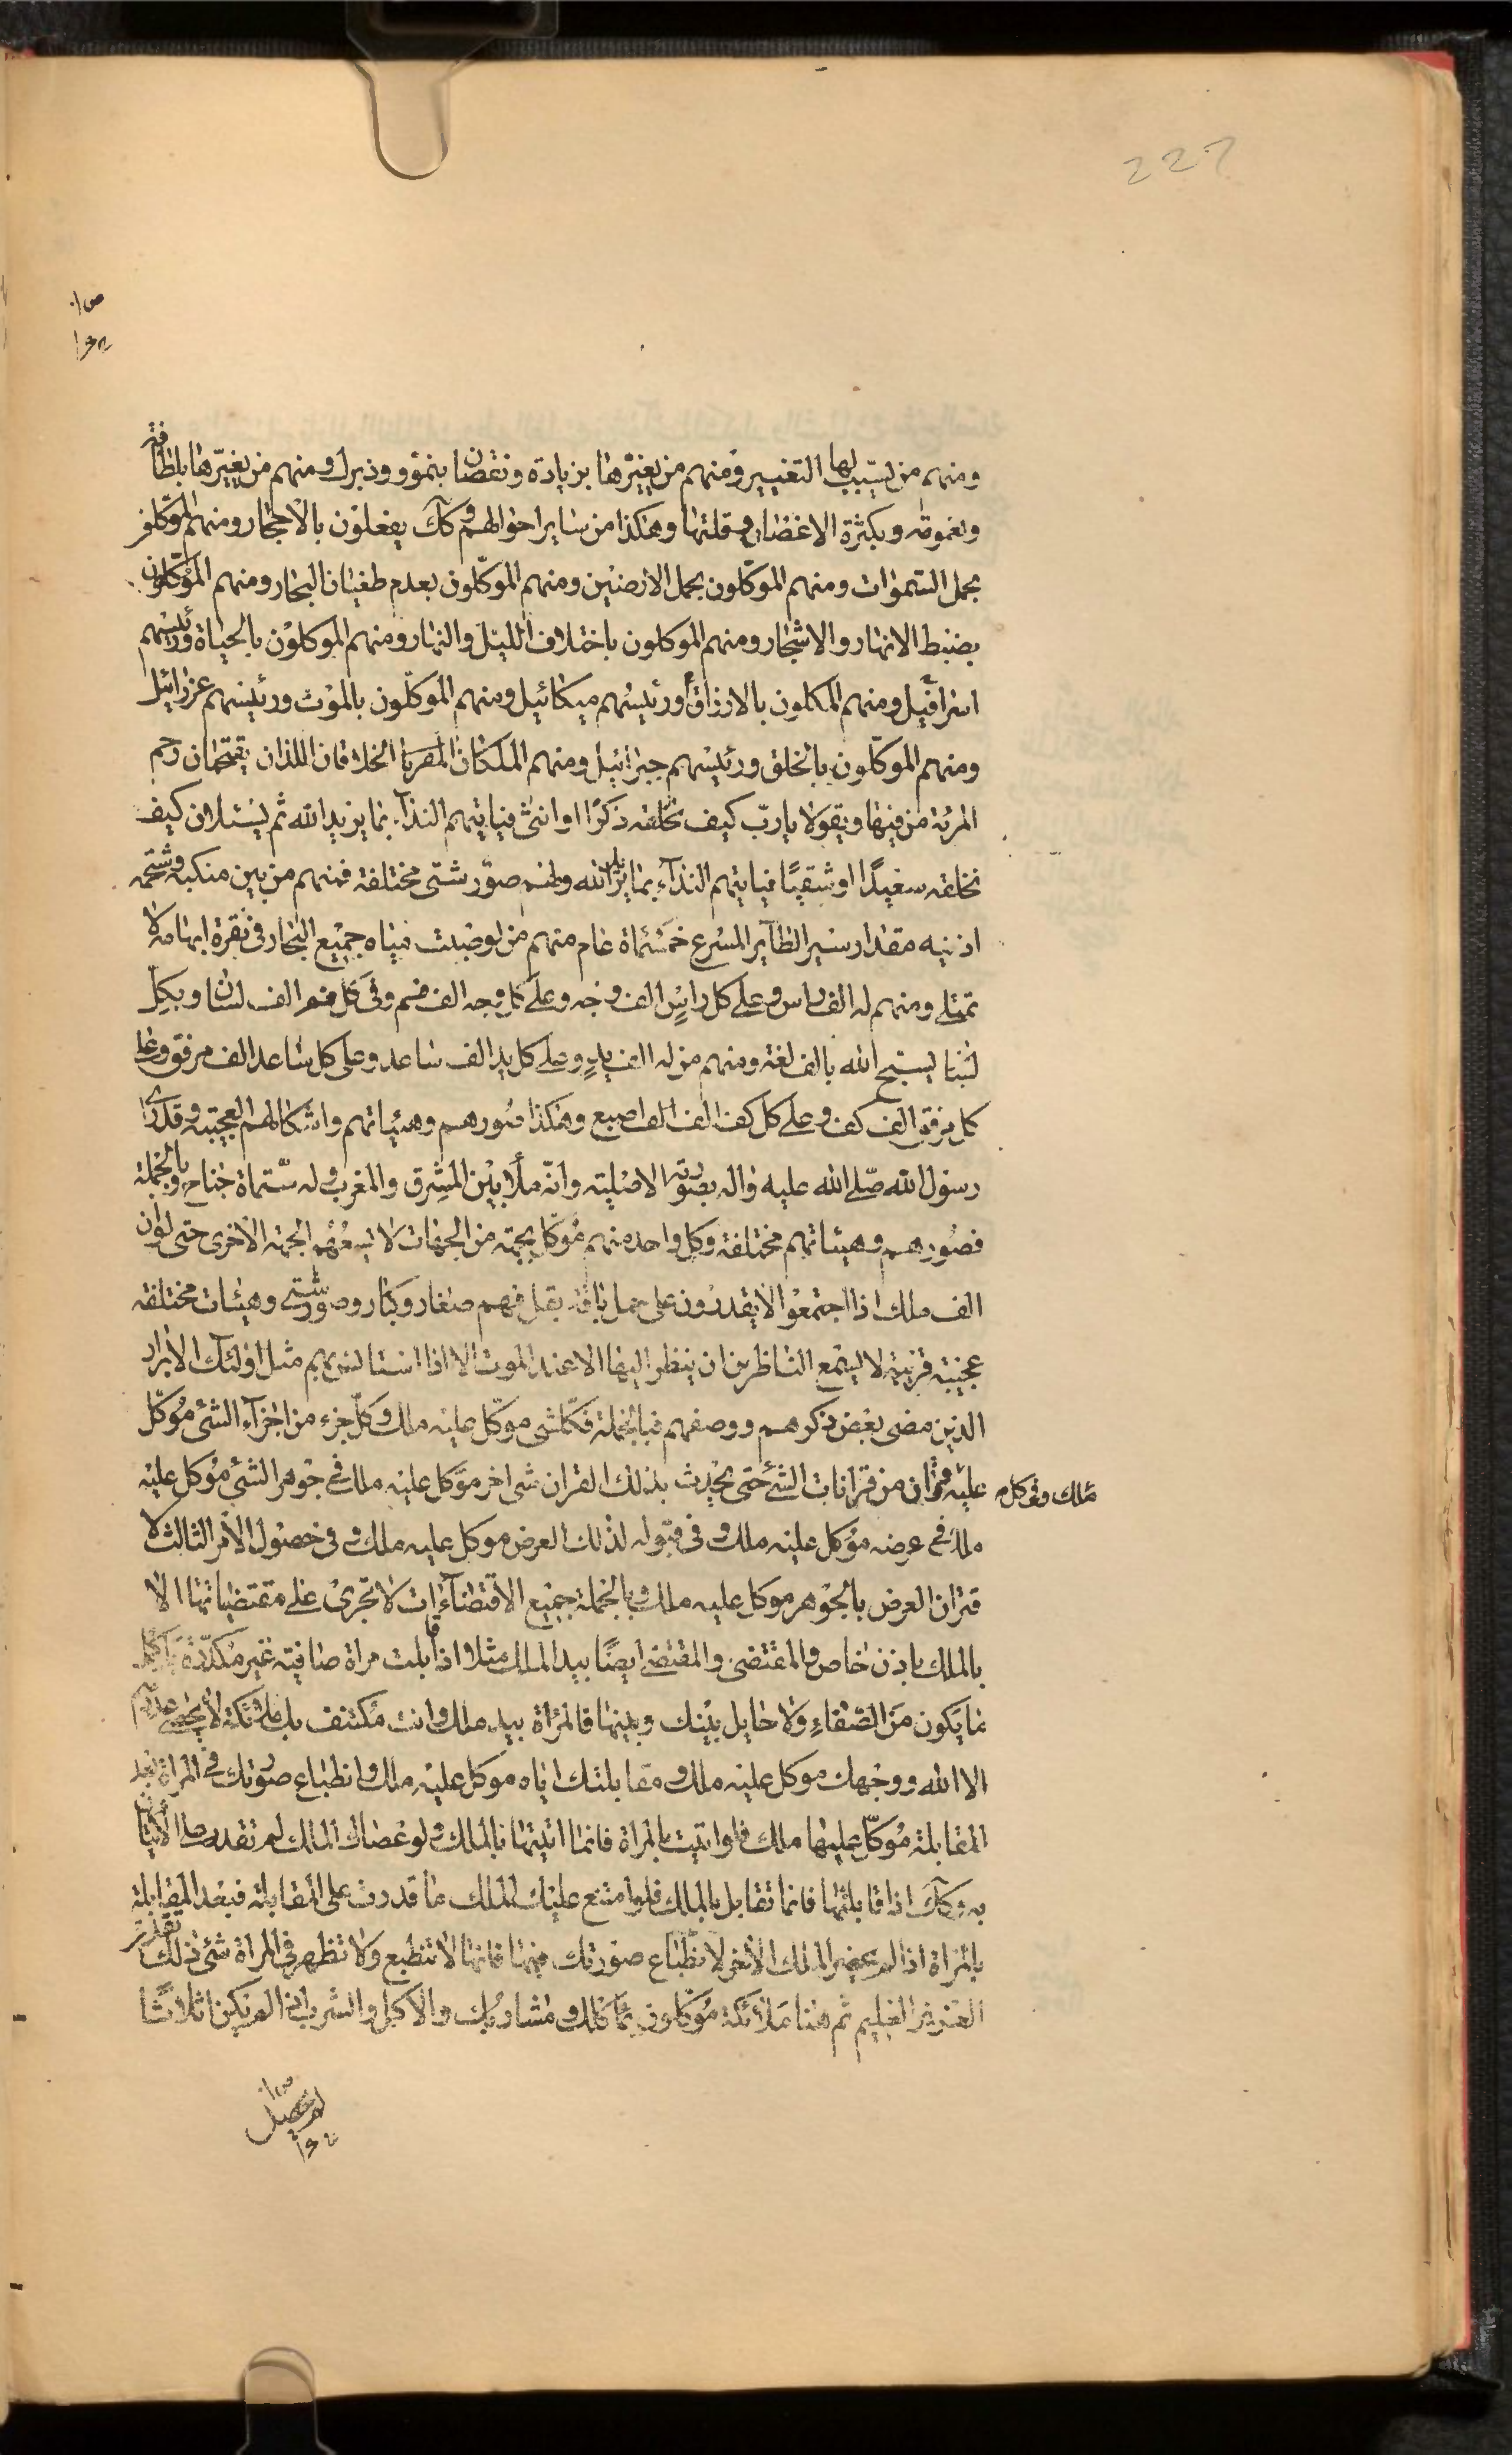 227
ومنهم من يسبب لها التغيير ومنهم من يغيرها بزيادة ونقصان بنمو وذبول ومنهم من يغيرها بلطافة
وبكثرة الاغصان وقلتها وهكذا من ساير احوالهم وكك يفعلون بالاحجار ومنهم الموكلون
بحمل السموات ومنهم الموكلون بحمل الارضين ومنهم الموكلون بعدم طغيان البحار ومنهم الموكلون
بضبط الانهار والاشجار ومنهم الموكلون باختلاف الليل والنهار ومنهم الموكلون بالحياة ورئيسهم
اسرافيل ومنهم المكلون بالارزاق ورئيسهم ميكائيل ومنهم الموكلون بالموت ورئيسهم عزرائيل
ومنهم الموكلون بالخلق ورئيسهم جبرائيل ومنهم الملكان الخلاقان اللذان يقتحمان رحم
المرئة من فيها ويقولا يارب كيف نخلقه ذكرا او انثى فياتيهم النداء بما يريد الله ثم يسئلان كيف
نخلقه سعيدا او شقيا فياتيهم النداء بما يريد الله ولهم صور شتى مختلفة فمنهم من بين منكبه وشحمه
اذنيه مقدار سير الطاير المسرع خمسمأة عام منهم من لو ضبت مياه جميع البحار في نقرة ابهامه لا
تمتلي ومنهم له الف راس وعلى كل راس الف وجه وعلى كل وجه الف فم وفي كل فم الف لسان وبكل
لسان يسبح الله بالف لغة ومنهم من له الف يد وعلى كل يد الف ساعد وعلى كل ساعد الف مرفق وعلى
كل مرفق الف كف وعلى كل كف الف الف اصبع وهكذا صورهم وهيئاتهم واشكالهم العجيبة وقد رأى
رسول الله صلى الله عليه واله بصورته الاصلية وانه ملأ بين المشرق والمغرب وله ستمأة جناح وبالجملة
فصورهم وهيئاتهم مختلفة وكل واحد منهم موكل بجهة من الجهات لا يسعهم الجهة الاخرى حتى لو ان
الف ملك اذا اجتمعوا لا يقدرون على فهم صغار وكبار وصور شتى وهيئات مختلفة
عجيبة غريبة لا يسع الناظرين ان ينظر اليها الا عند الموت الا اذا مثل اولئك الابرار
الذين مضى بعض ذكرهم ووصفهم فبالجملة فكلشي موكل عليه ملك وكل جزء من اجزاء الشئ موكل
عليه قران من قرانات الشئ حتى يحدث بذلك القران شئ اخر موكل عليه ملك في جوهر الشئ موكل عليه
ملك وفى كل
ملك في عرضه موكل عليه ملك وفي قبوله لذلك العرض موكل عليه ملك وفي حصول الامر الثالث لا
قتران العرض بالجوهر موكل عليه ملك وبالجملة جميع الاقتضاآت لا تجرى على مقتضياتها الا
بالملك باذن خاص والمقتضى والمقتضى ايضا بيد الملك مثلا اذا قابلت مراة صافية غير مكدرة باكمل
ما يكون من الصفاء ولا حايل بينك وبينها فالمراة بيد ملك وانت مكتنف بك ملائكة لا يحصى عددهم
الا الله ووجهك موكل عليه ملك ومقابلتك اياه موكل عليه ملك وانطباع صورتك في المراة بعد
المقابلة موكل عليها ملك فلو اتيت بالمراة فانما اتيتها بالملك ولو عصاك الملك لم تقدر على الاتيان
به وكك اذا قابلتها فانما تقابل بالملك فلو امتنع عليك الملك ما قدرت على المقابلة فبعد المقابلة
بالمراة اذا لم يحضر الملك الاخر لانطباع صورتك فيها فانها لا تنطبع ولا تظهر في المراة شئ ذلك تقدير
العزيز العليم ثم هنا ملائكة موكلون بمأكلك ومشاربك والاكل والشرب اذا لم يكن اثلاثا